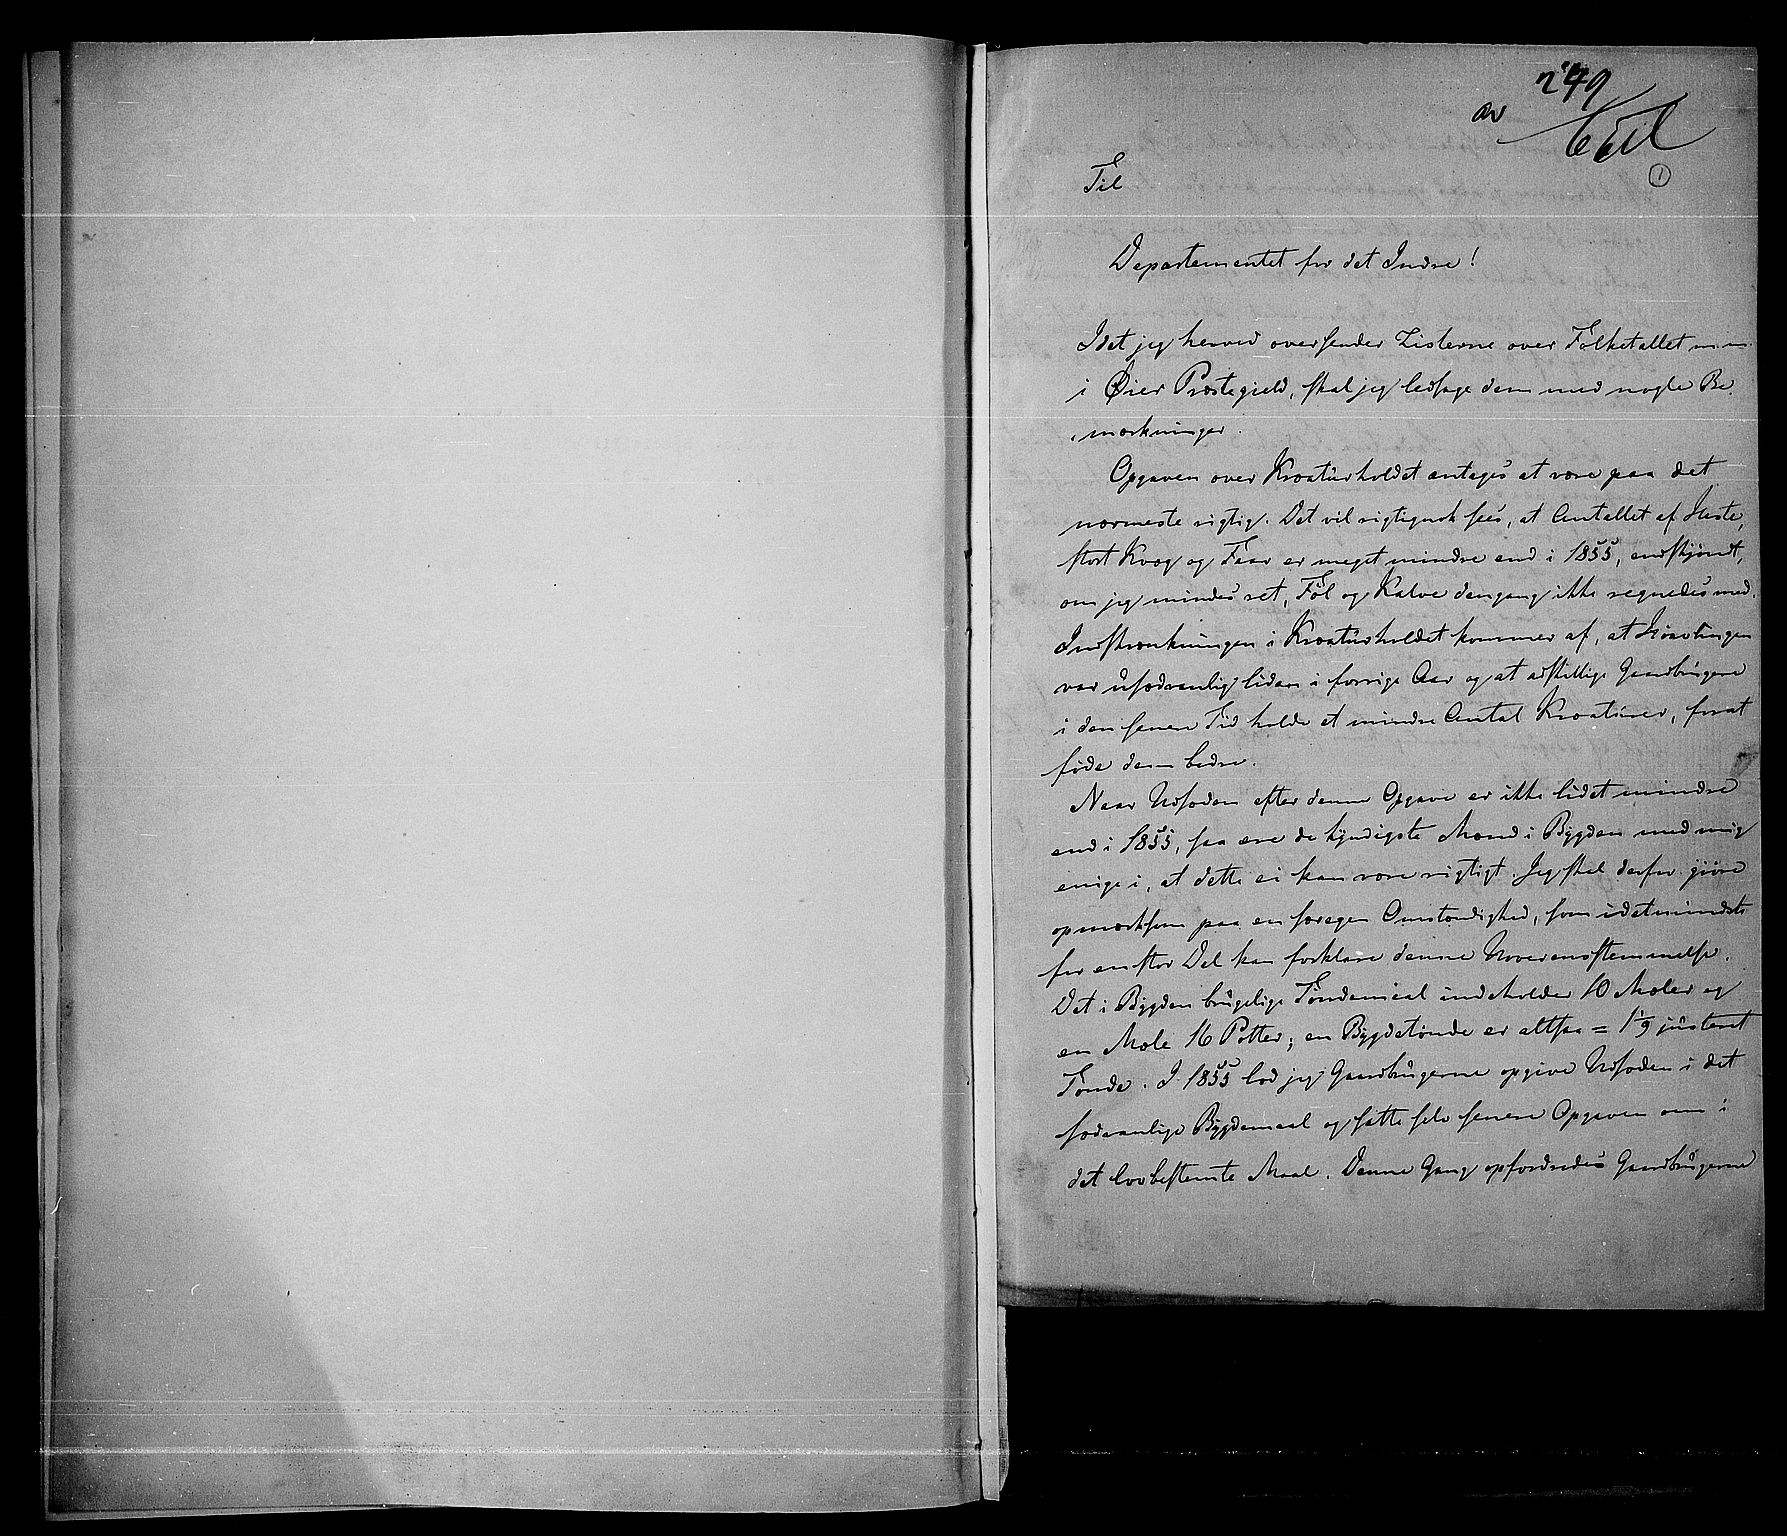 279
av
①
Til
Departementet for det Indre!
Idet jeg herved oversender Listerne over Folketallet m.m.
i Øier Præstegield, skal jeg ledsage dem med nogle Be-
mærkninger.
Opgaven over Kreaturholdet antages at være paa det
nærmeste rigtig. Det vil rigtignok sees, at Antallet af Heste,
stort Kvæg og Faar er meget mindre end i 1855, endskjøndt,
om jeg mindes ret, Føl og Kalve dengang ikke regnedes med.
Indskrænkningen i Kreaturholdet kommer af, at Høavlingen
var usædvanlig liden i forrige Aar og at adskillige Gaardbrugere
i den senere Tid holde et mindre Antal Kreaturer, forat
føde dem bedre.
Naar Udsæden efter denne Opgave er ikke lidet mindre
end i 1855, saa ere de kyndigste Mænd i Bygden med mig
enige i, at dette ei kan være rigtigt. Jeg skal derfor giøre
opmærksom paa en særegen Omstændighed, som idetmindste
for en stor Del kan forklare denne Uoverensstemmelse.
Det i Bygden brugelige Tøndemaal indeholder 10 Mæler og
en Mæle 16 Potter; en Bygdetønde er altsaa = 1 1/9 justeret
Tønde. I 1855 lod jeg Gaardbrugerne opgive Udsæden i det
sædvanlige Bygdemaal og satte selv senere Opgaven om i
det lovbestemte Maal. Denne Gang opfordredes Gaardbrugerne